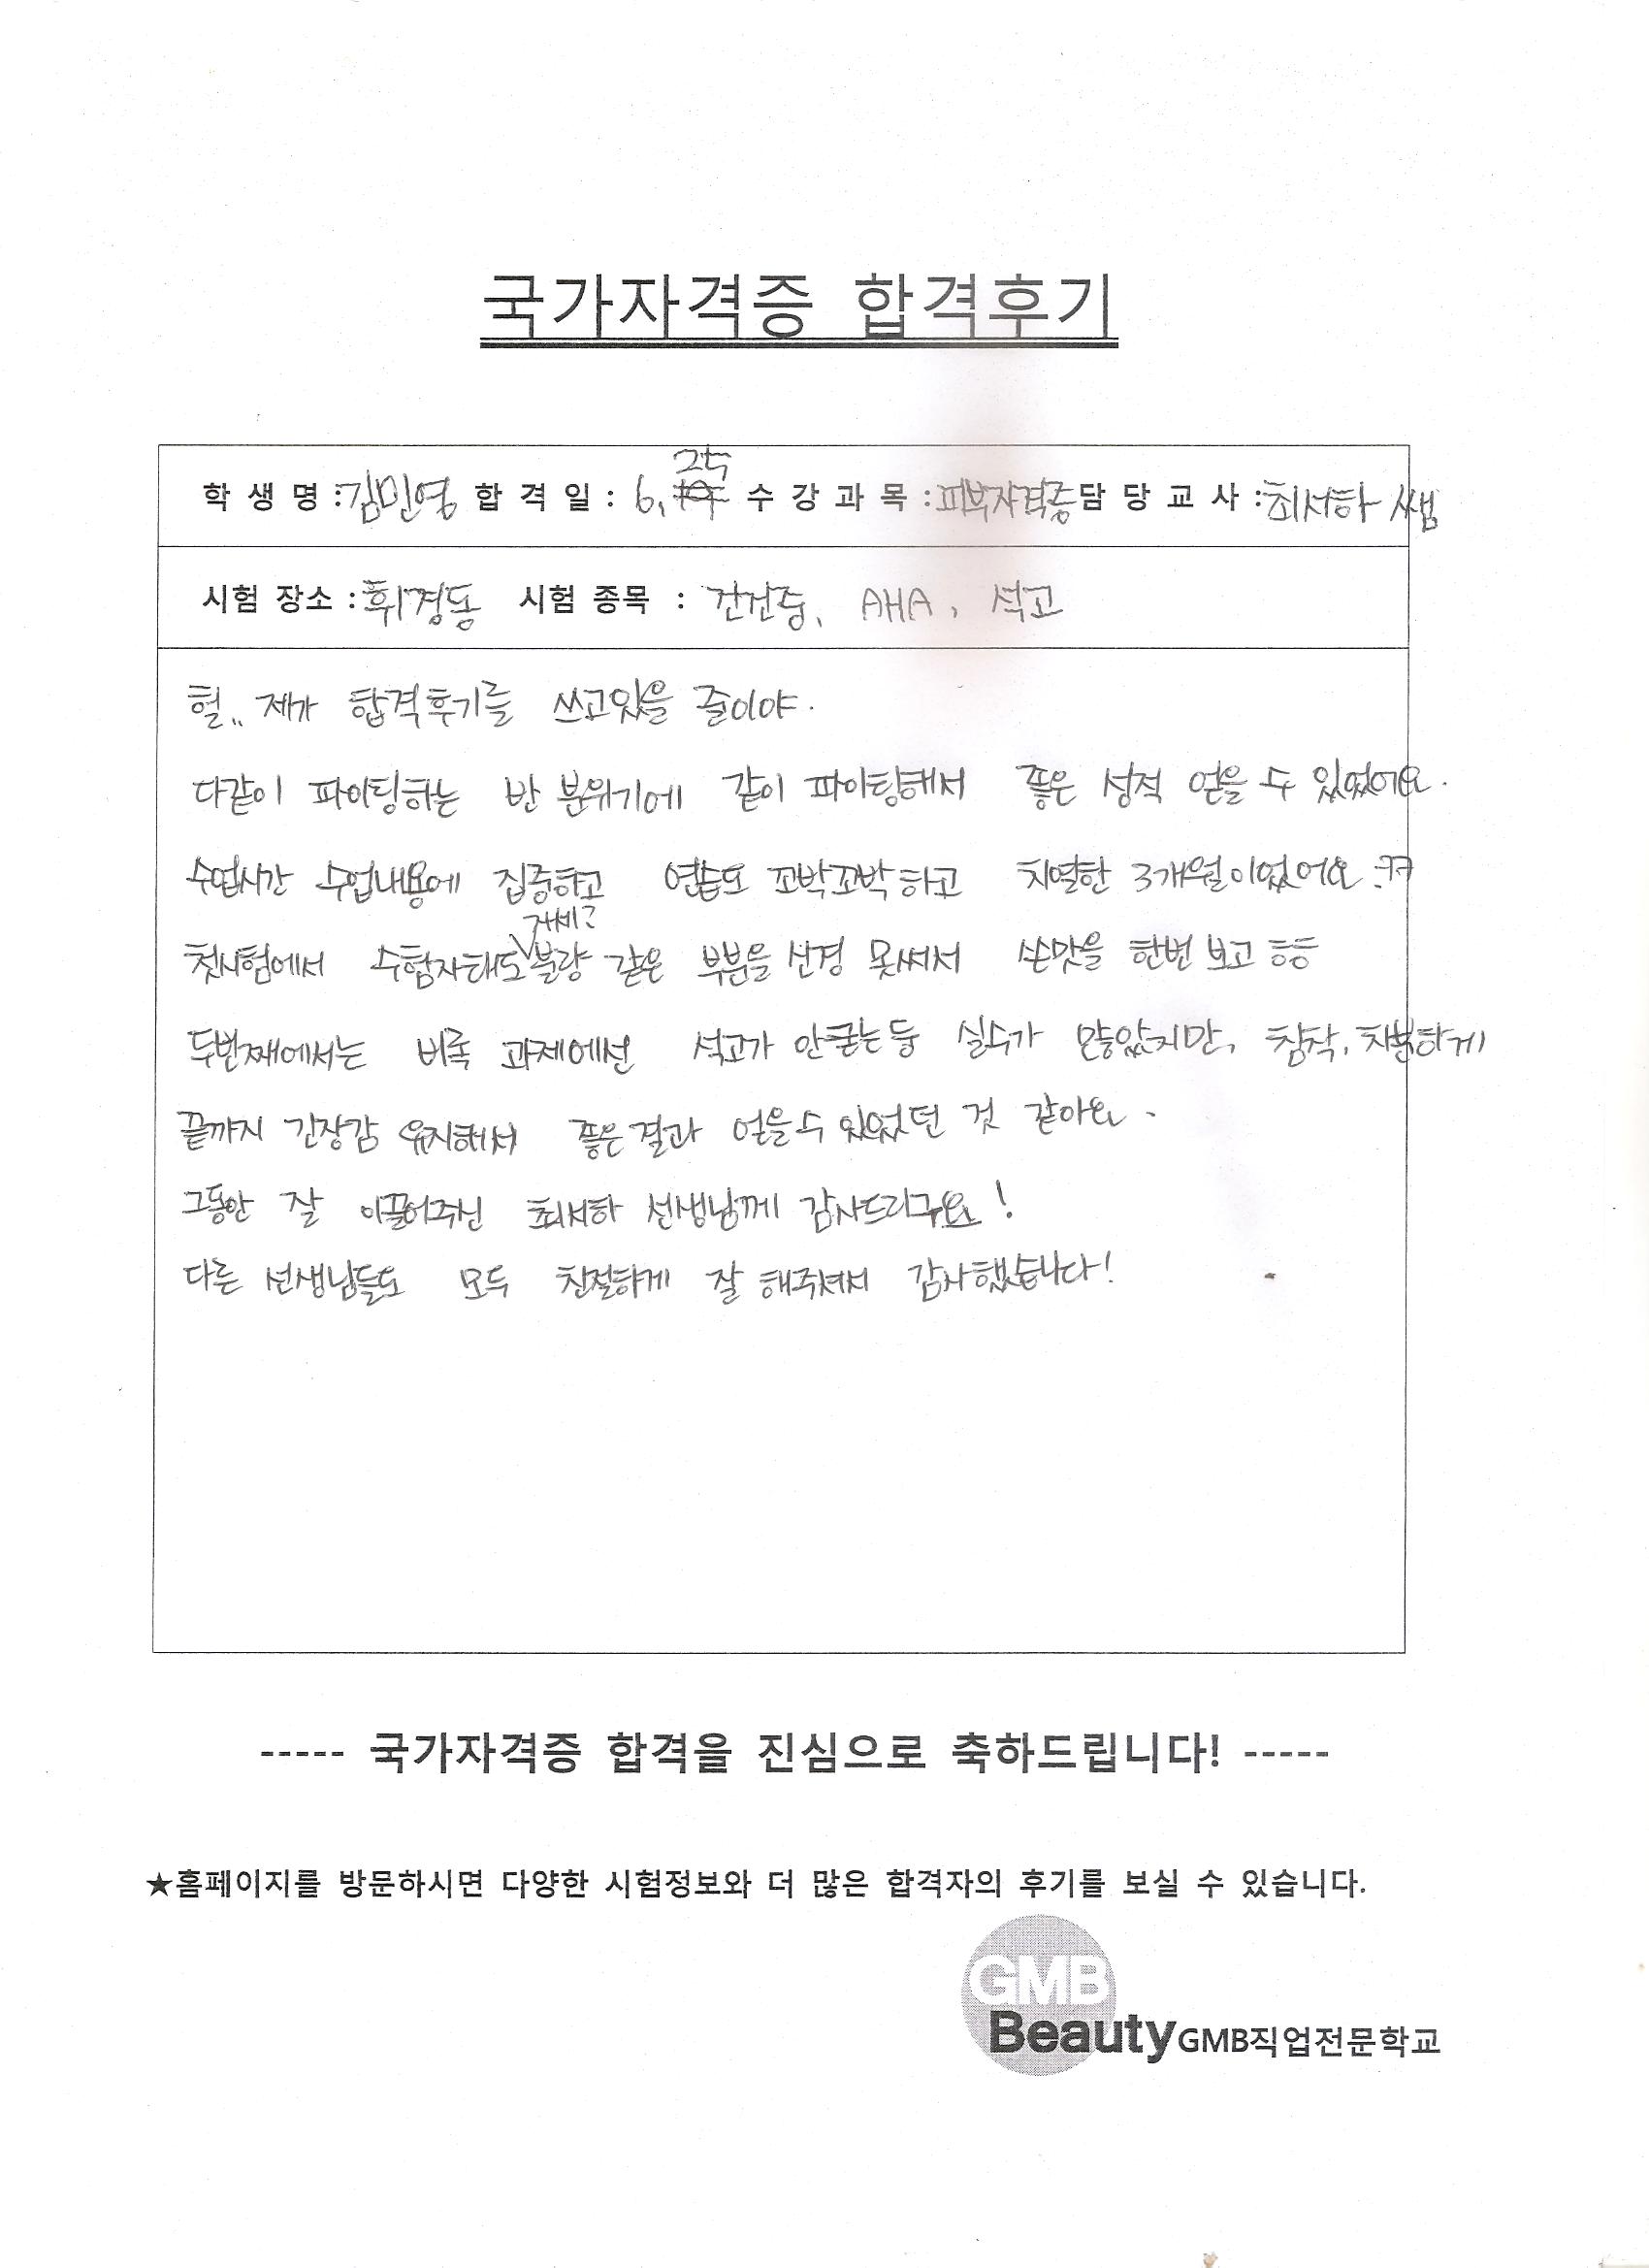 국가자격증 합격후기
학 생 명 : 김민영 합 격 일 : 6. 25 수 강 과 목 : 피부자격증 담 당 교 사 : 최서하 쌤
시험 장소 : 휘경동 시험 종목 : 건건중, AHA, 석고
헐.. 제가 합격후기를 쓰고있을 줄이야.
다같이 파이팅하는 반 분위기에 같이 파이팅해서 좋은 성적 얻을 수 있었어요.
수업시간 수업내용에 집중하고 연습도 꼬박꼬박 하고 치열한 3개월이었어요.ㅋㅋ
자세?
첫시험에서 수험자태도 불량 같은 부분을 신경 못써서 쓴맛을 한번 보고 흐흐
두번째에서는 비록 과제에선 석고가 안굳는등 실수가 많았지만, 침착, 차분하게
끝까지 긴장감 유지해서 좋은결과 얻을수 있었던 것 같아요.
그동안 잘 이끌어주신 최서하 선생님께 감사드리구요!
다른 선생님들도 모두 친절하게 잘 해주셔서 감사했습니다!
----- 국가자격증 합격을 진심으로 축하드립니다! -----
★홈페이지를 방문하시면 다양한 시험정보와 더 많은 합격자의 후기를 보실 수 있습니다.
GMB
Beauty GMB직업전문학교